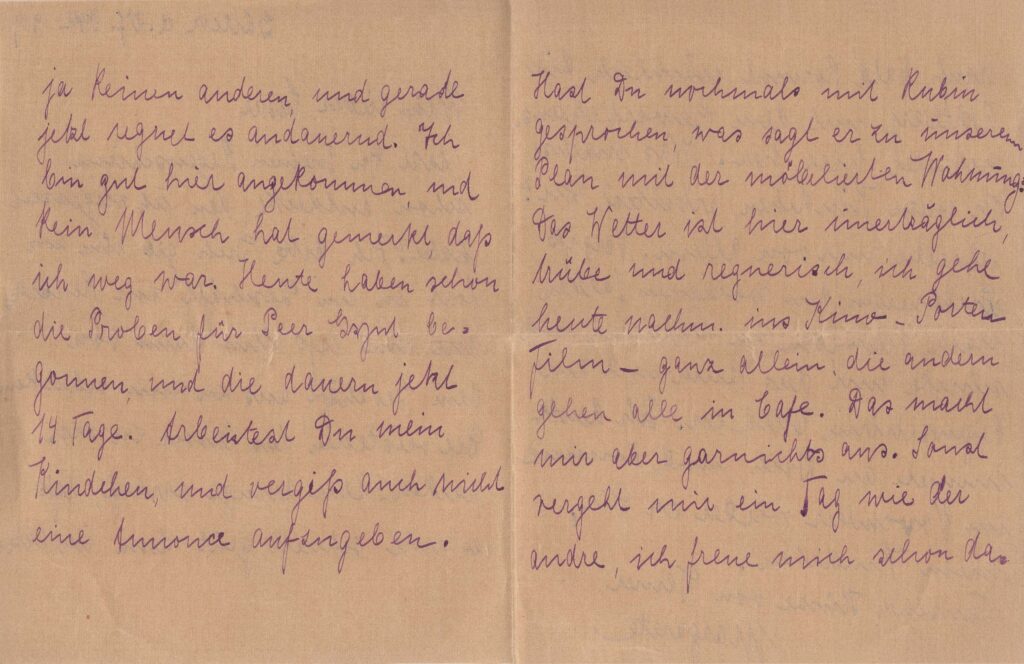 ja keinen anderen, und gerade
jetzt regnet es andauernd. Ich
bin gut hier angekommen und
kein Mensch hat gemerkt daß
ich weg war. Heute haben schon
die Proben für Peer Gynt be-
gonnen, und die dauern jetzt
14 Tage. Arbeitest Du mein
Kindchen, und vergiß auch nicht
eine Annonce aufzugeben.
Hast Du nochmals mit Rubin
gesprochen, was sagt er zu unserem
Plan mit der möbelierten Wohnung?
Das Wetter ist hier unerträglich,
trübe und regnerisch, ich gehe
heute nachm. ins Kino – Porten
Film – ganz allein, die andern
gehen alle in Cafe. Das macht
mir aber garnichts aus. Sonst
vergeht mir ein Tag wie der
andre, ich freue mich schon da-